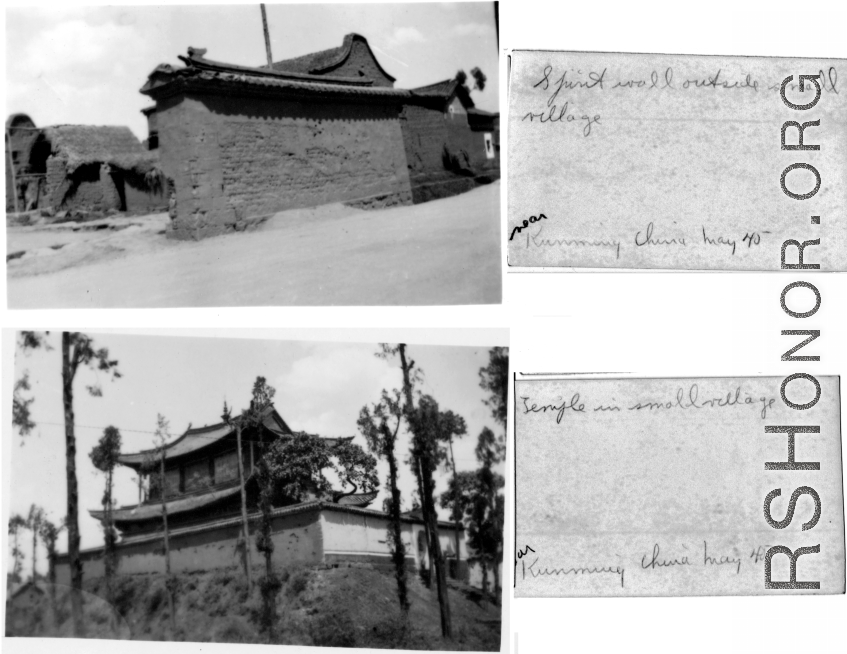 Spirit wall outside small
village
near
Kunming China May 45
Temple in small village
Kunming China May 4
RSHONOR.ORG